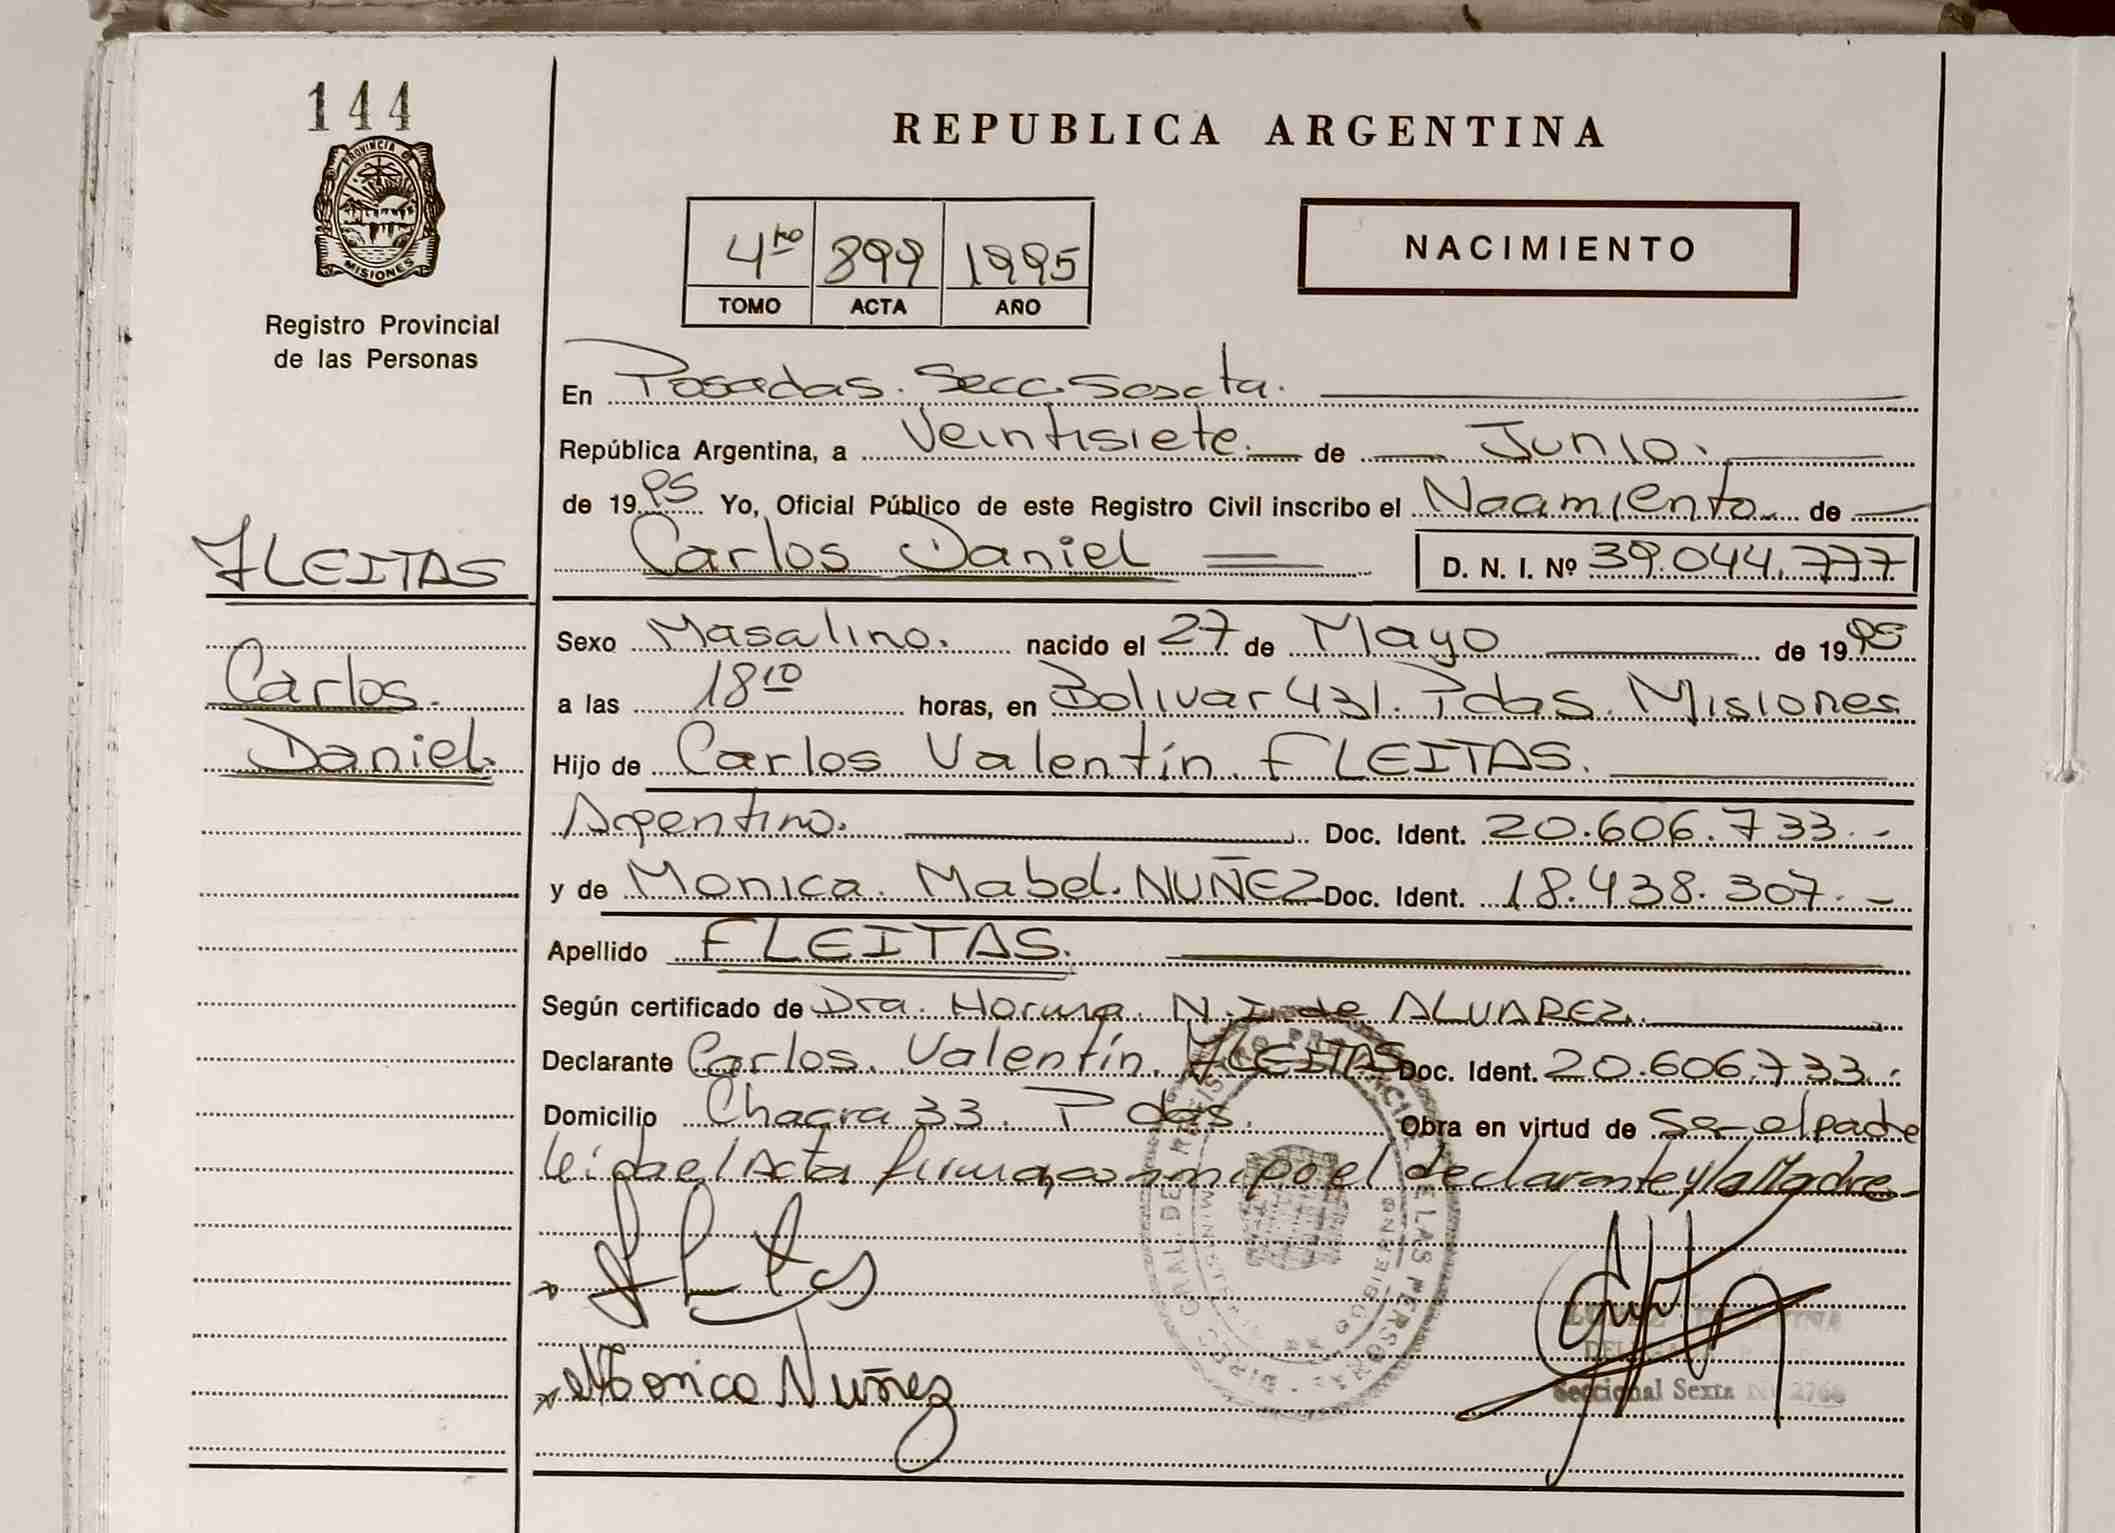 144
PROVINCIA D
MISIONES
Registro Provincial
de las Personas
FLEITAS
Carlos.
Daniel.
REPUBLICA ARGENTINA
4to 899 1995
TOMO ACTA AÑO
NACIMIENTO
En Posadas. Secc. Sexta.
República Argentina, a Veintisiete. de Junio.
de 1995 Yo, Oficial Público de este Registro Civil inscribo el Nacimiento de
Carlos Daniel D. N. I. Nº 39.044.777
Sexo Masculino. nacido el 27 de Mayo de 1995
a las 18 10 horas, en Bolivar 431. Pdas. Misiones
Hijo de Carlos Valentín FLEITAS.
Argentino. Doc. Ident. 20.606.733.-
y de Monica. Mabel. NUÑEZ Doc. Ident. 18.438.307.-
Apellido FLEITAS.
Según certificado de Dra. Norma N. I. de ALVAREZ.
Declarante Carlos. Valentín. FLEITAS Doc. Ident. 20.606.733.-
Domicilio Chacra 33. Pdas. Obra en virtud de Ser el padre
leida el Acta firma conmigo el declarante y la Madre-
Fleitas
Monica Nuñez
Seccional Sexta Nº 2768